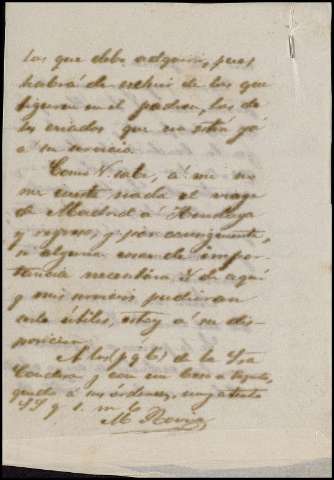 los que debe adquirir, pues
habrá de excluir de los que
figuren en el padron, los de
los criados que no estén ya
á su servicio.
Como V. sabe, á mi no
me cuesta nada el viage
de Madrid á Hendaya
y regreso, y por consiguiente,
si alguna cosa de impor-
tancia necesitára V. de aquí
y mis servicios pudieran
serle útiles, estoy á su dis-
posicion.
A los p q b de la Sra
Condesa y con un beso á
quedo á sus órdenes, suyo atento
SS q s. m b
M